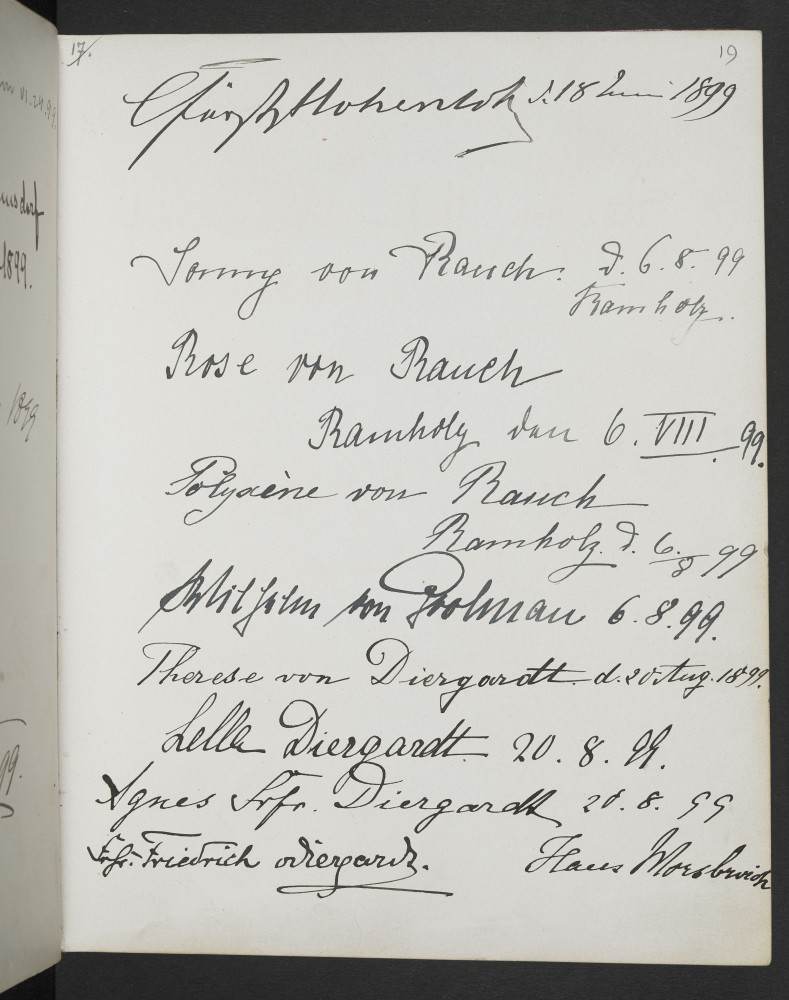 17.
19
CFürst Hohenlohe d. 18 Juni 1899
von Rauch. d. 6. 8. 99
Ramholz.
Rose von Rauch
Ramholz den 6. VIII. 99.
Polyxène von Rauch
Ramholz. d. 6./8 99
Wilhelm von Grolman 6. 8. 99.
Therese von Diergardt. d. 20. Aug. 1899.
Lella Diergardt 20. 8. 99.
Agnes Frfr. Diergardt 20. 8. 99
Frhr. Friedrich Diergardt.
Hans